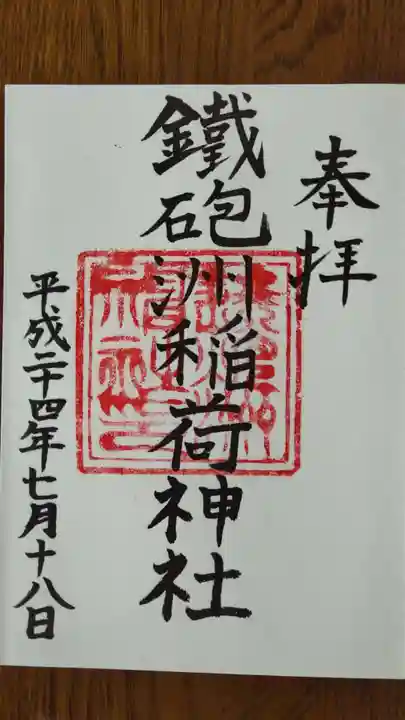 奉拝
鐵砲洲稲荷神社
平成二十四年七月十八日